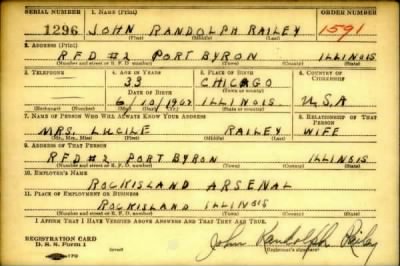 SERIAL NUMBER 1. NAME (Print) ORDER NUMBER
1296 JOHN RANDOLPH RAILEY 1591
(First) (Middle) (Last)
2. ADDRESS (Print)
RFD #2 PORT BYRON ILLINOIS
(Number and street or R. F. D. number) (Town) (County) (State)
3. TELEPHONE 4. AGE IN YEARS 5. PLACE OF BIRTH 6. COUNTRY OF CITIZENSHIP
33 CHICAGO
DATE OF BIRTH (Town or county)
6/10/1907 ILLINOIS. U.S.A
(Exchange) (Number) (Mo.) (Day) (Yr.) (State or country)
7. NAME OF PERSON WHO WILL ALWAYS KNOW YOUR ADDRESS 8. RELATIONSHIP OF THAT PERSON
MRS. LUCILE RAILEY WIFE
(Mr., Mrs., Miss) (First) (Middle) (Last)
9. ADDRESS OF THAT PERSON
RFD #2 PORT BYRON ILLINOIS
(Number and street or R. F. D. number) (Town) (County) (State)
10. EMPLOYER'S NAME
ROCKISLAND ARSENAL
11. PLACE OF EMPLOYMENT OR BUSINESS
ROCKISLAND ILLINOIS
(Number and street or R. F. D. number) (Town) (County) (State)
I AFFIRM THAT I HAVE VERIFIED ABOVE ANSWERS AND THAT THEY ARE TRUE.
REGISTRATION CARD
D. S. S. Form 1
John Randolph Railey
(Registrant's signature)